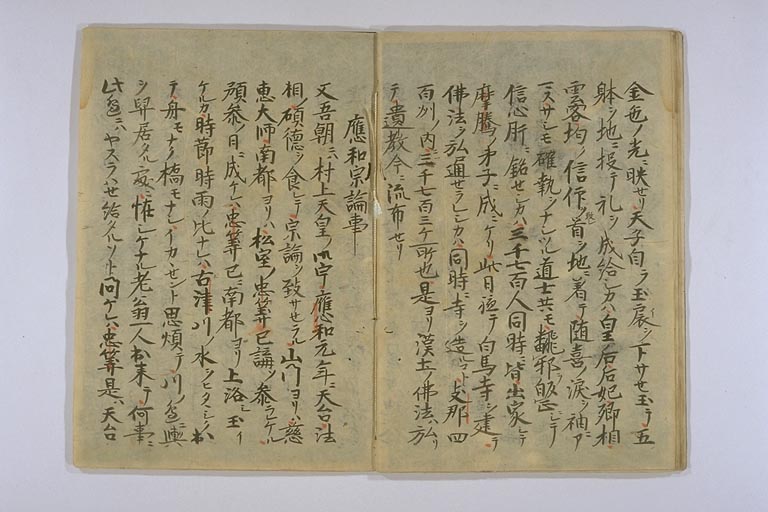 金色ノ光ニ映セリ天子自ラ玉扆ヲ下サセ玉テ五
躰ヲ地ニ投テ礼ヲ成給シカハ皇ノ后后妃卿相
雲客均ク信仰ノ首ヲ地ニ着テ随喜ノ涙ヲ袖ニ
サシモ確執ヲナシツル道士共モ翻邪皈正シテ
信心肝ニ銘セシカハ三千七百人同時ニ皆出家シテ
摩騰ノ弟子ニ成ニケリ此日ヤカテ白馬寺ヲ建テ
佛法ヲ弘通セラレシカハ同時ニ寺ヲ造コト支那四
百州ノ内ニ三千七百三ケ所也是ヨリ漢土ノ佛法ハ弘リ
テ遺教今ニ流布セリ
應和宗論事
又吾朝ニハ村上天皇ノ御宇應和元年ニ天台法
相ノ碩德ヲ食シテ宗論ヲ致サセラル山門ヨリハ慈
恵大師南都ヨリハ松室ノ忠筭已講ソ参ラレケル
顔参ノ日ニ成ケレハ忠筭已ニ南都ヨリ上洛シ玉イ
ケルカ時節時雨ノ比ナレハ古津川ノ水ヲヒタヽシク出
テ舟モナク橋モナシイカヽセント思煩テ川ノ邊ニ輿
ヲ舁居タル處ニ怪シケナル老翁一人出来テ何事ニ
此邊ニハヤスラハセ給タルソト問ケレハ忠筭是ハ天台